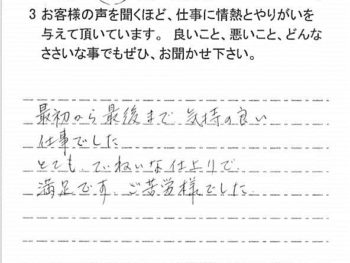 3 お客様の声を聞くほど、仕事に情熱とやりがいを
与えて頂いています。良いこと、悪いこと、どんな
ささいな事でもぜひ、お聞かせ下さい。
最初から最後まで 気持の良い
仕事でした
とても、ていねいな仕上りで
満足です。ご苦労様でした